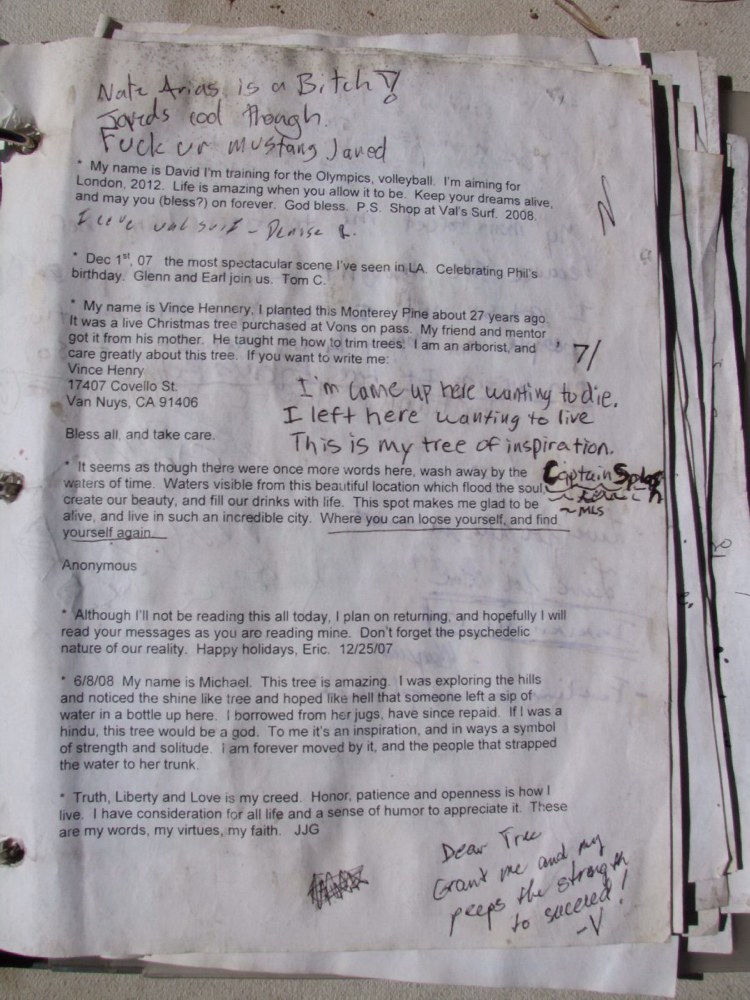 Nate Arias is a Bitch!
Jareds cool though.
Fuck ur mustang Jared
* My name is David I'm training for the Olympics, volleyball. I'm aiming for
London, 2012. Life is amazing when you allow it to be. Keep your dreams alive,
and may you (bless?) on forever. God bless. P.S. Shop at Val's Surf. 2008.
I love val surf - Denise R.
* Dec 1st, 07 the most spectacular scene I've seen in LA. Celebrating Phil's
birthday. Glenn and Earl join us. Tom C.
* My name is Vince Hennery, I planted this Monterey Pine about 27 years ago.
It was a live Christmas tree purchased at Vons on pass. My friend and mentor
got it from his mother. He taught me how to trim trees. I am an arborist, and
care greatly about this tree. If you want to write me:
Vince Henry
17407 Covello St.
Van Nuys, CA 91406
I'm came up here wanting to die.
I left here wanting to live
This is my tree of inspiration.
Bless all, and take care.
Captain
~MLS
* It seems as though there were once more words here, wash away by the
waters of time. Waters visible from this beautiful location which flood the soul,
create our beauty, and fill our drinks with life. This spot makes me glad to be
alive, and live in such an incredible city. Where you can loose yourself, and find
yourself again.
Anonymous
* Although I'll not be reading this all today, I plan on returning, and hopefully I will
read your messages as you are reading mine. Don't forget the psychedelic
nature of our reality. Happy holidays, Eric. 12/25/07
* 6/8/08 My name is Michael. This tree is amazing. I was exploring the hills
and noticed the shine like tree and hoped like hell that someone left a sip of
water in a bottle up here. I borrowed from her jugs, have since repaid. If I was a
hindu, this tree would be a god. To me it's an inspiration, and in ways a symbol
of strength and solitude. I am forever moved by it, and the people that strapped
the water to her trunk.
* Truth, Liberty and Love is my creed. Honor, patience and openness is how I
live. I have consideration for all life and a sense of humor to appreciate it. These
are my words, my virtues, my faith. JJG
Dear Tree
Grant me and my
peeps the strength
to succeed!
-V